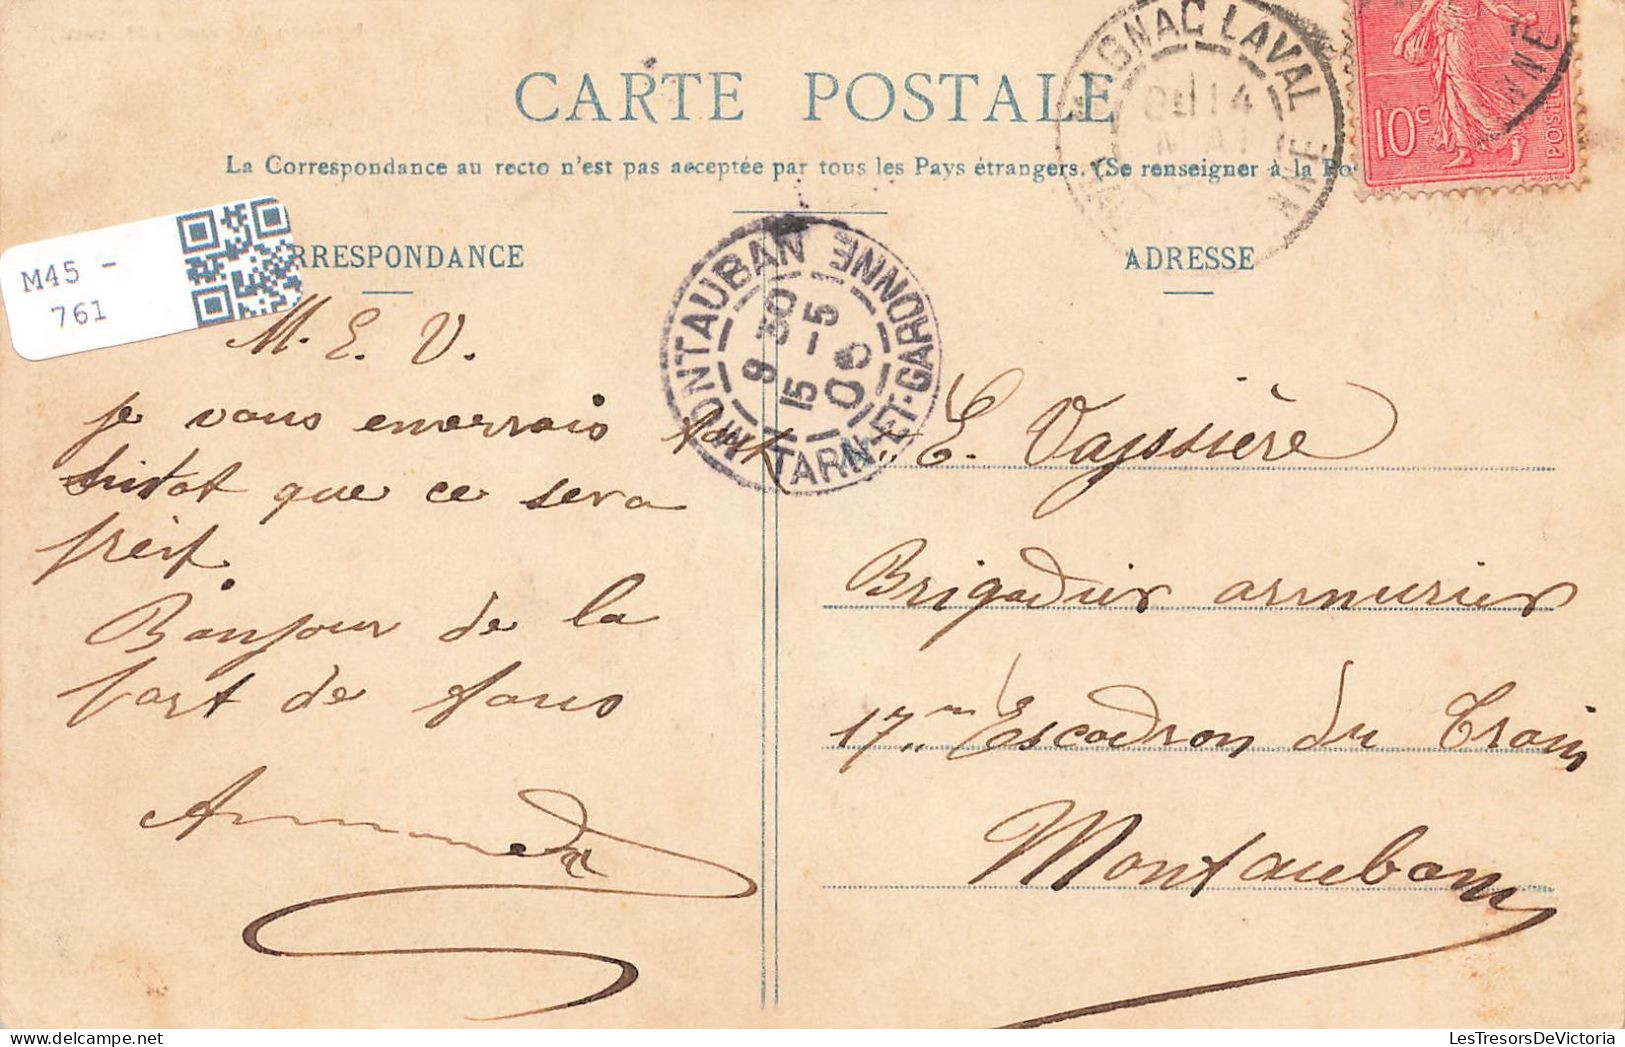 CARTE POSTALE
La Correspondance au recto n'est pas acceptée par tous les Pays étrangers. (Se renseigner à la Po
M45 -
761
RRESPONDANCE
ADRESSE
MAGNAC LAVAL
14
MAI
VIENNE
10c
POSTES
MONTAUBAN TARN-ET-GARONNE
9 30
15 - 5
06
M. E. V.
je vous enverrais tout
suitot que ce sera
prèt.
Bonjour de la
part de tous
Armand
E. Vayssière
Brigadier armurier
17me Escadron du Train
Montauban
LesTresorsDeVictoria